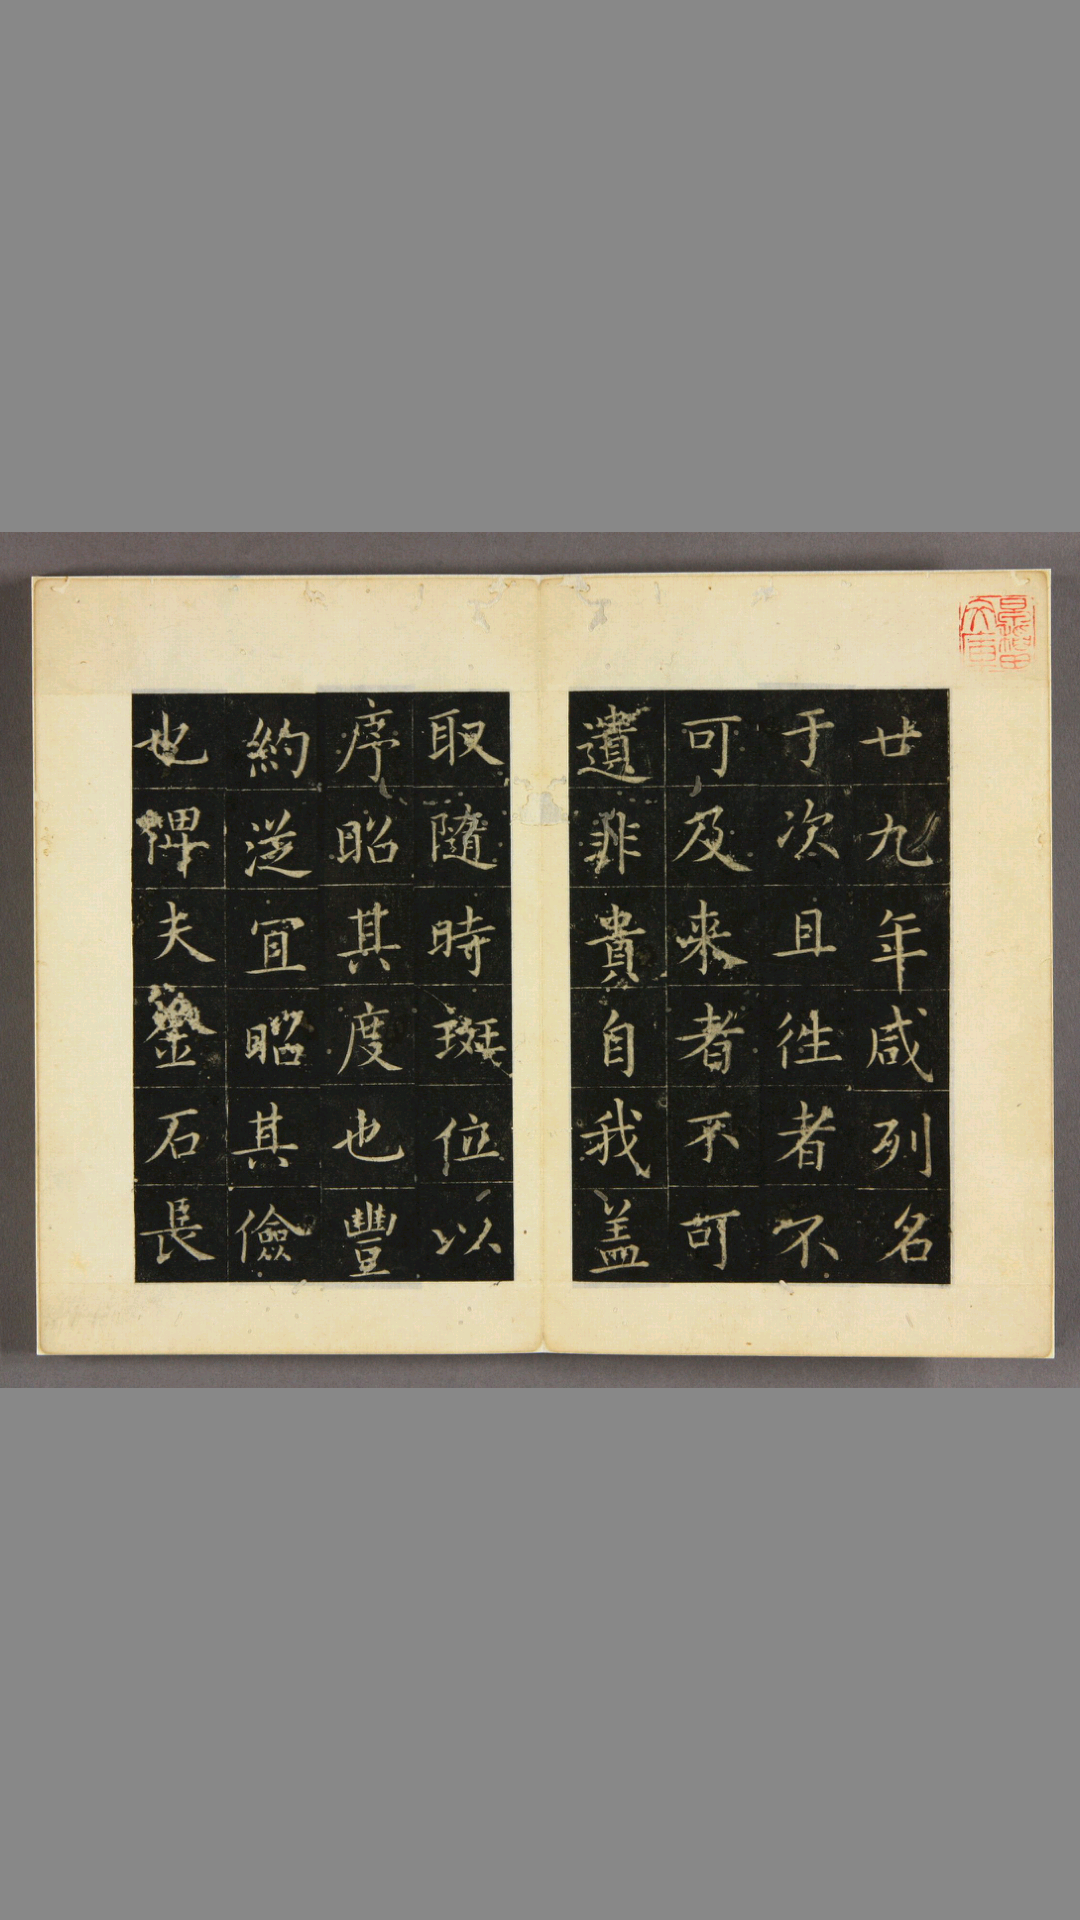 廿九年咸列名
于次且徃者不
可及来者不可
遺非貴自我盖
取隨時班位以
序昭其度也豐
約從宜昭其儉
也俾夫鑒石長